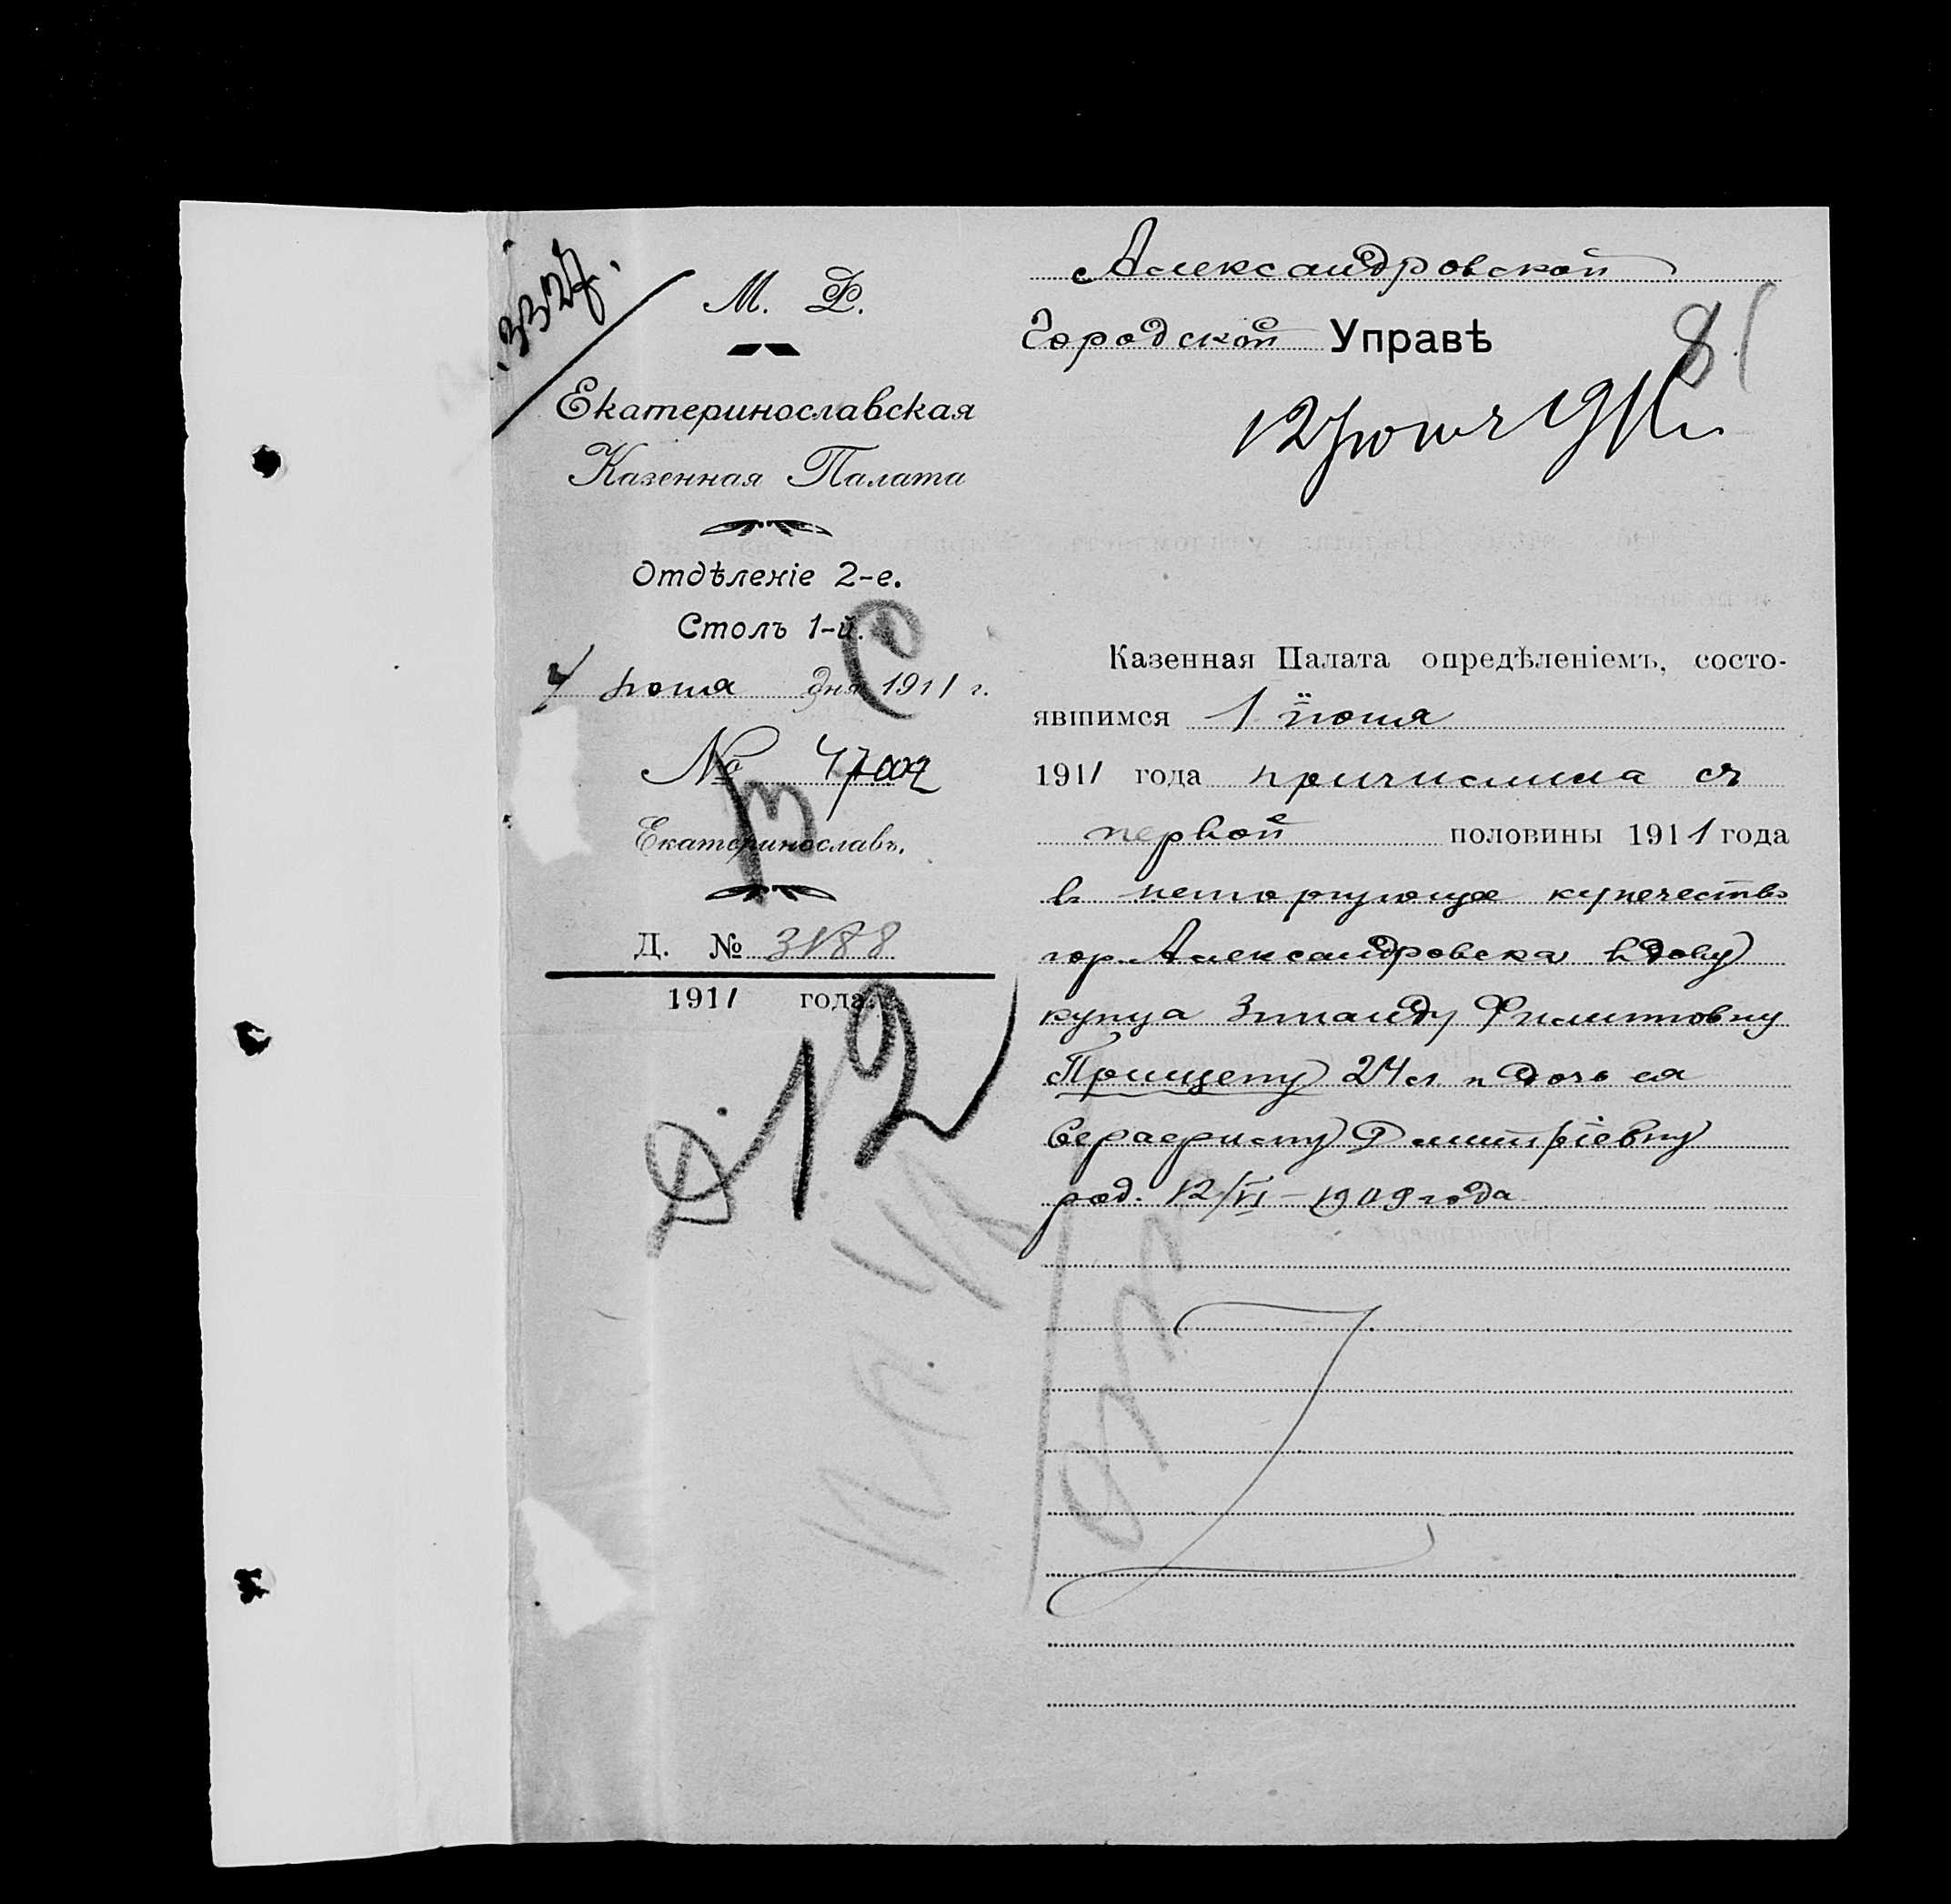 3327.
М. Ф.
Екатеринославская
Казенная Палата
Отдѣленіе 2-е.
Столъ 1-й.
7 іюня дня 1911 г.
№ 47002
Екатеринославъ.
Д. № 3188
1911 года.
Д. 12
Александровской
Городской Управѣ
81
12 Іюня 1911 г.
Казенная Палата опредѣленіемъ, состо-
явшимся 1 іюня
1911 года причислила съ
первой половины 1911 года
въ неторгующее купечество
гор. Александровска вдову
купца Зинаиду Филипповну
24 л. и дочь ея
Серафиму Димитріевну
род. 12/VI – 1909 года